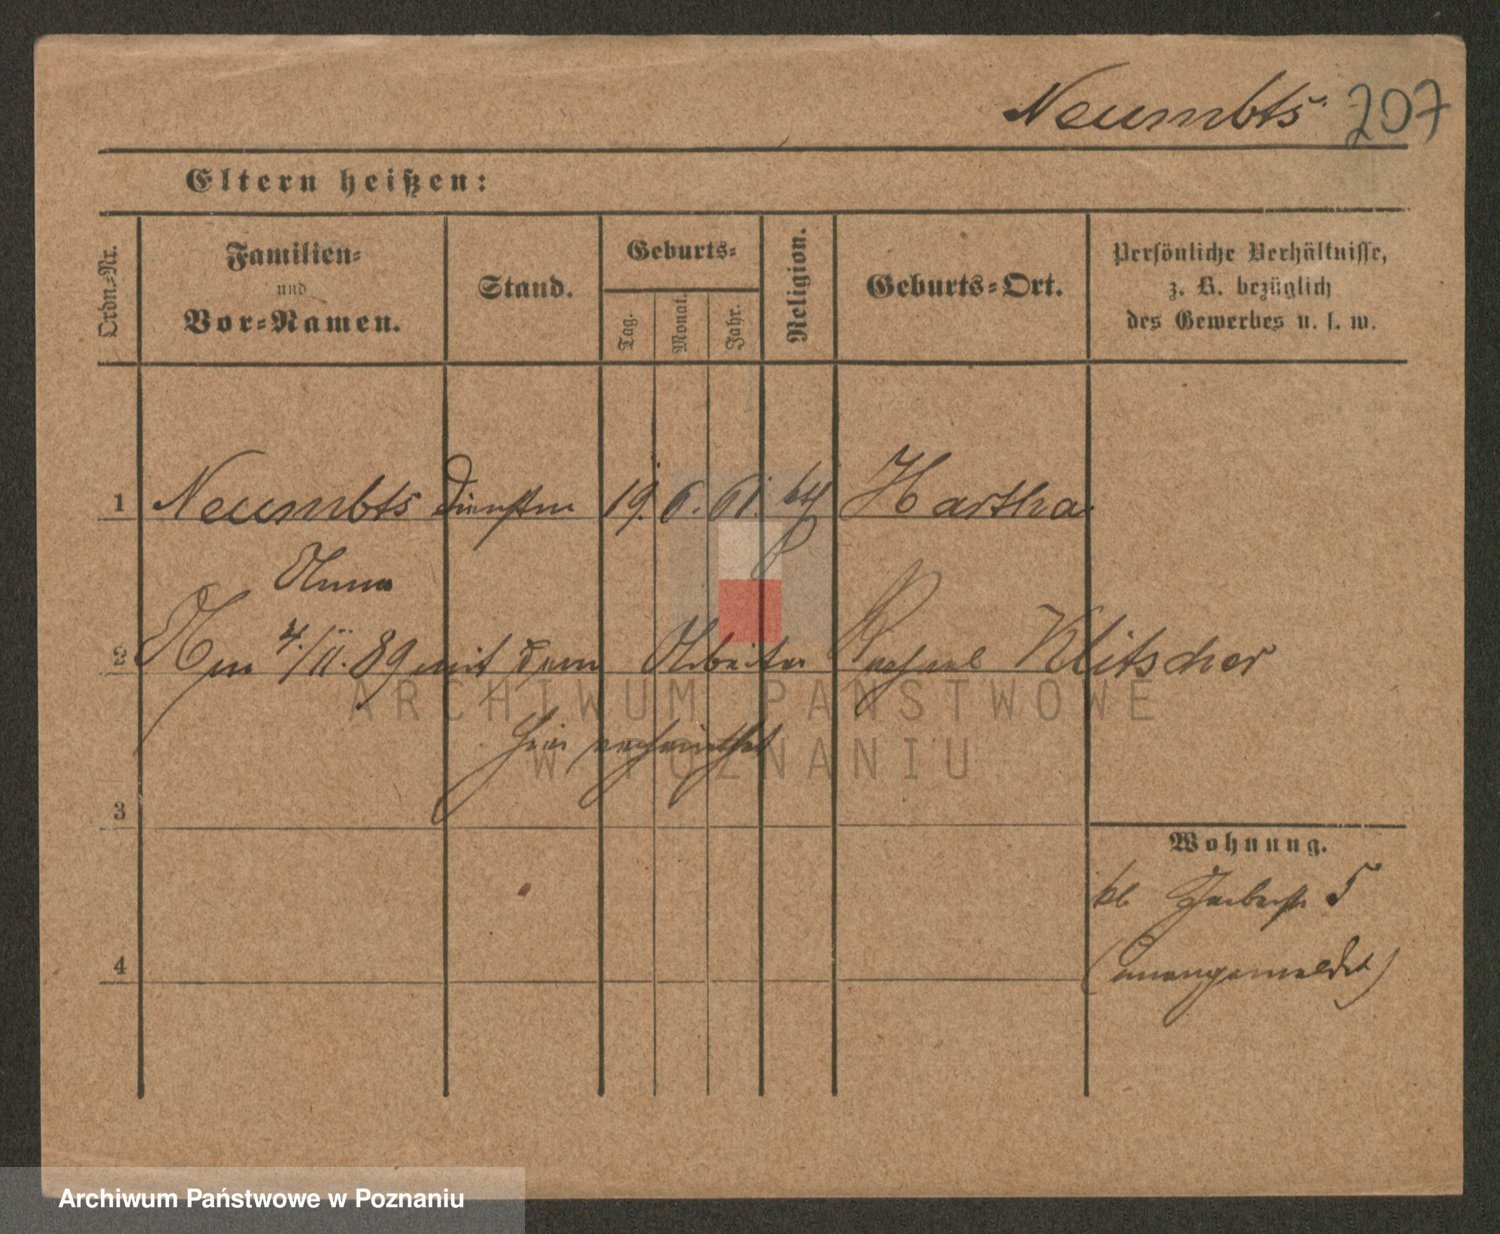 Neumbts 207
Eltern heißen:
Ordn.-Nr.
Familien-
und
Vor-Namen.
Stand.
Geburts-
Tag.
Monat.
Jahr.
Religion.
Geburts-Ort.
Persönliche Verhältnisse,
z. B. bezüglich
des Gewerbes u. s. w.
1 Neumbts 19. 6. 61. Hartha
Anna
2 Am 4./II. 89 mit dem Arbeiter Klitscher
hier verheirathet
3
Wohnung.
kl. 5
4
(unangemeldet)
ARCHIWUM PAŃSTWOWE
W POZNANIU
Archiwum Państwowe w Poznaniu